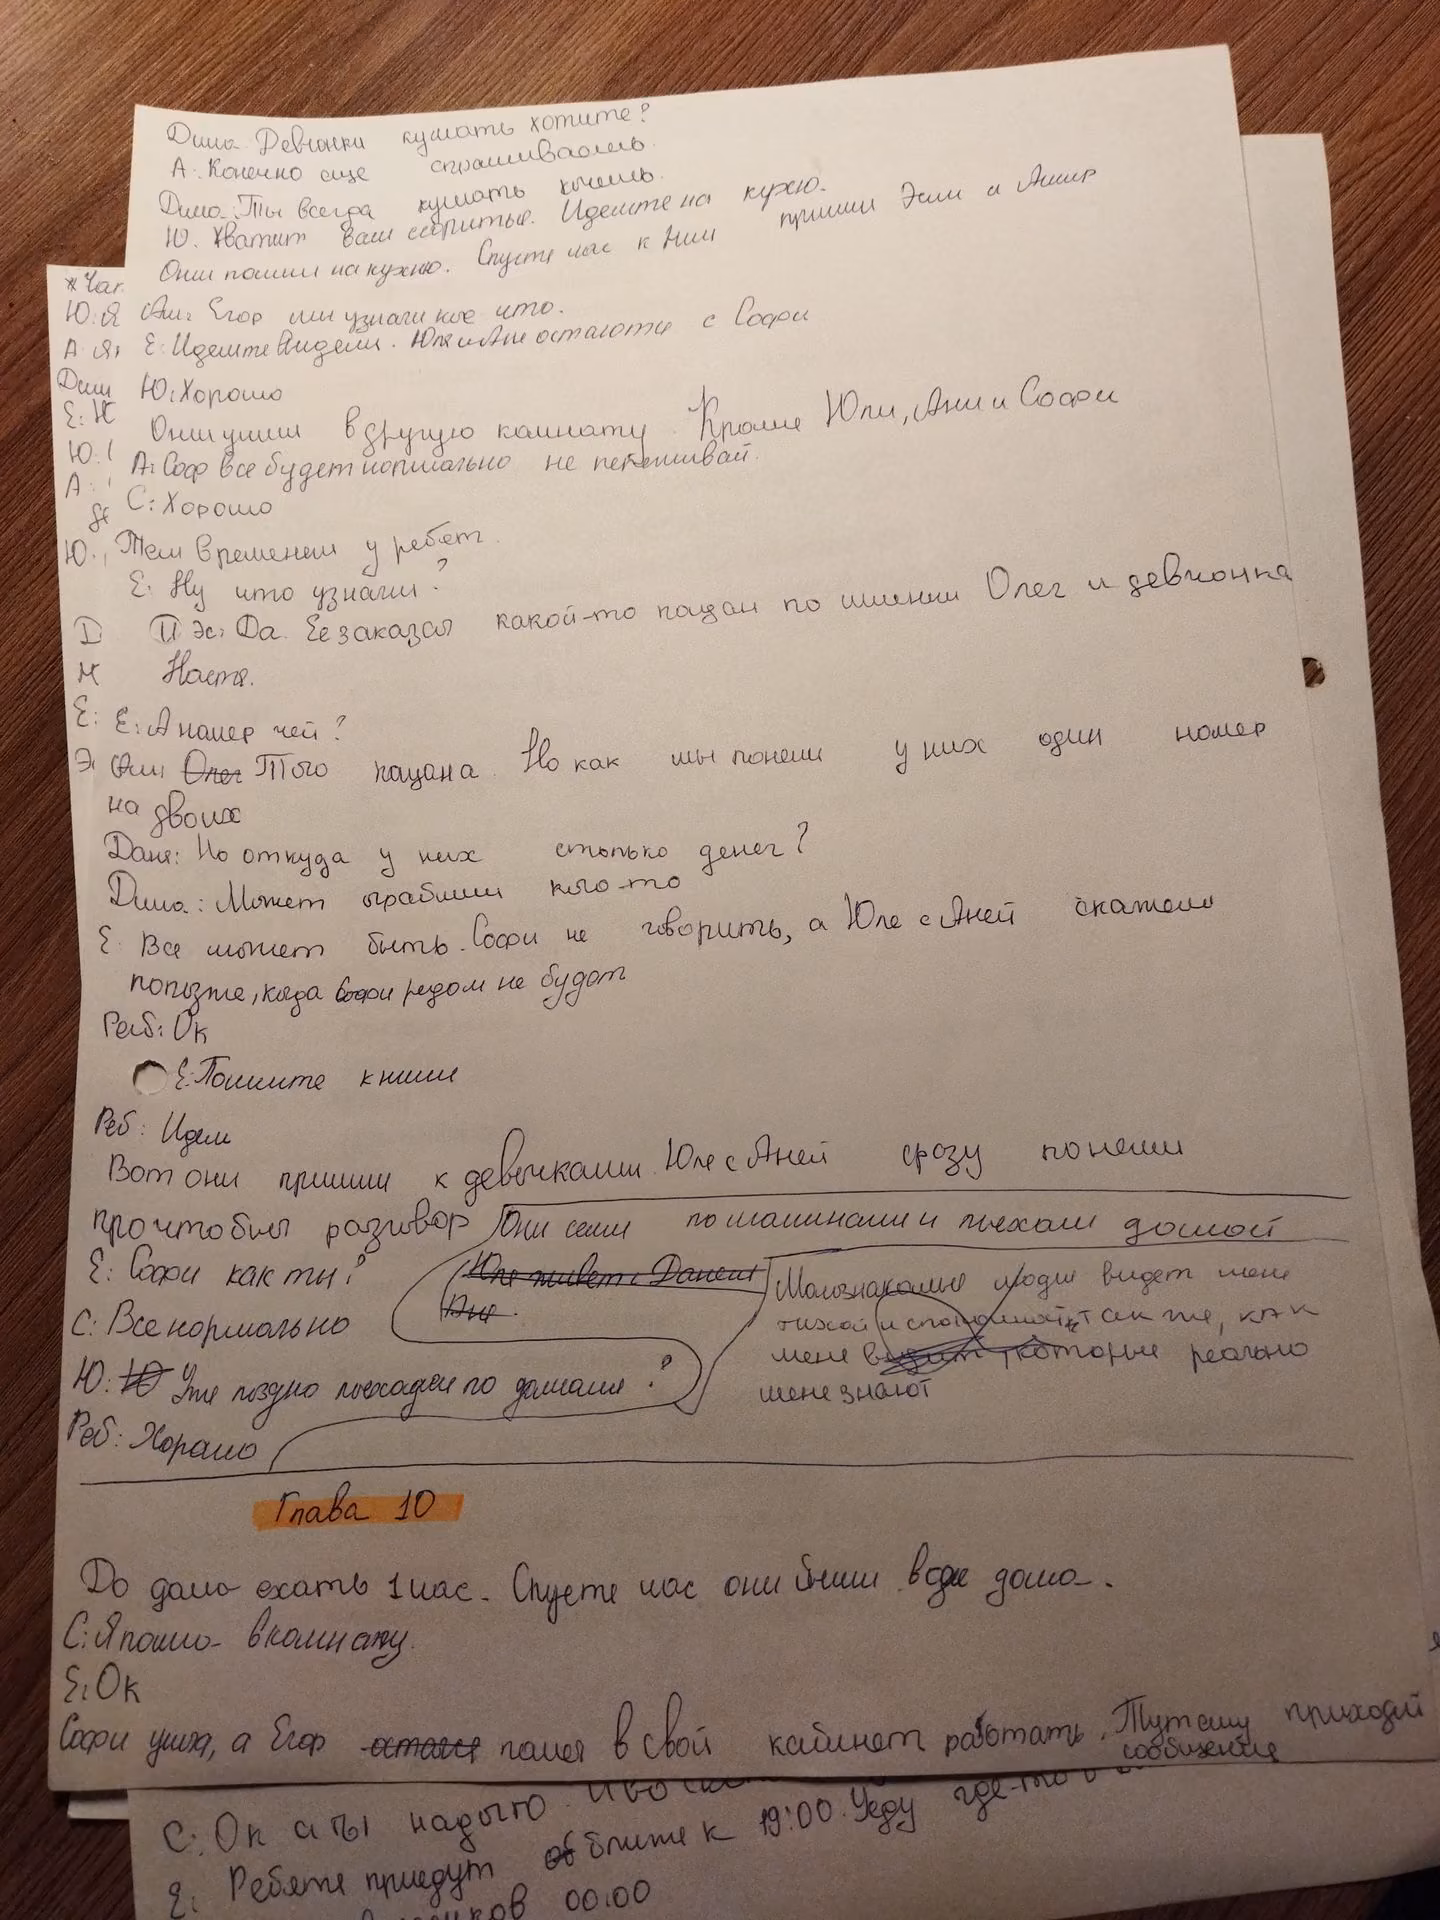 Дима Девчонки кушать хотите?
А. Конечно еще спрашиваешь.
Дима: Ты всегда кушать хочешь.
Ю. Хватит вам ссорится. Идемте на кухю.
Они пошли на кухню. Спусте час к ним пришли Эли и Амир
Ам: Егор мы узнали кое что.
Е: Идемте выдели. Юля и Аня остаюти с Софи
Ю: Хорошо
Они ушли в другую комнату. Кроме Юли, Ани и Софи
А: Соф все будет нормально не переживай.
С: Хорошо
Тем временем у ребят.
Е: Ну что узнали?
Эс: Да. Ее заказал какой-то пацан по имени Олег и девчонка
Настя.
Е: А намер чей?
Ам: Олег Того пацана. Но как мы понели у них один номер
на двоих
Даня: Но откуда у них столько денег?
Дима: Может ограбили кого-то
Е: Все может быть. Софи не говорить, а Юле с Аней скажем
попозже, когда Софи редом не будет
Реб: Ок
Е: Пошлите к ним
Реб: Идем
Вот они пришли к девочкам. Юле с Аней сразу понели
про что был разговор Они сели по машинам и поехали домой
Е: Софи как ты?
Юле живет с Данем
С: Все нормально
Малознакомые люди видет меня
тихой и спокойной, так же, как
мене видит, которые реально
мене знают
Ю: Уже поздно поехали по домам?
Реб: Хорошо
Глава 10
До дома ехать 1 час. Спусте час они были возле дома.
С: Я пошла в комнату.
Е: Ок
Софи ушла, а Егор остался пошел в свой кабинет работать. Тут ему приходит
сообщение
С: Ок а ты надолго.
Е: Ребята приедут ближе к 19:00. Уеду где-то
00:00
*Час
Ю: Я
А: Ян
Дим
Е: Н
Ю:
А:
Ю.
Д
Н
Е:
Э: